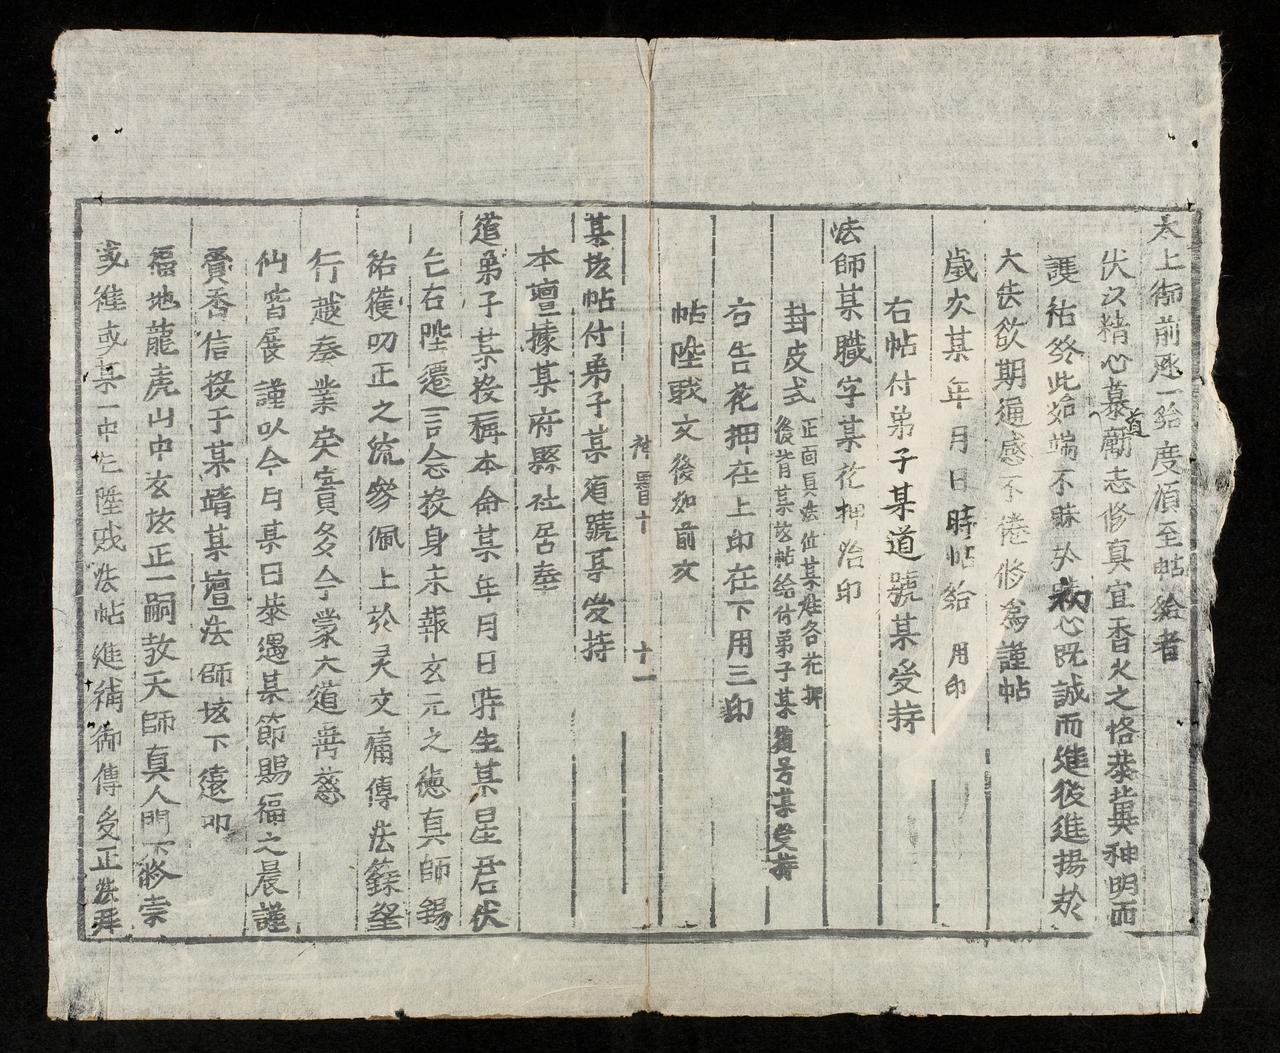 太上御前逐一給度須至帖給者
伏以精心慕道志修真宜香火之恪恭冀神明而
護祐終此始端不昧於初心既誠而進後進揚於
大法欲期通感不倦修為謹帖
歲次某年月日時帖給 用印
右帖付弟子某道號某受持
法師某職字某花押 給印
封皮式 正面具法位某姓名花押
後背某𡊨帖給付弟子某道号某受持
右告花押在上印在下用三印
帖陞戝文 後如前文
神霄十 十一
某𡊨帖付弟子某道號某受持
本壇據某府縣社居奉
道弟子某投稱本命某年月日時生某星君伏
乞右陞遷言念投身未報玄元之德真師錫
祐獲叨正之流參佩上於灵文痛傳法籙壂
行越奉業矣實多今蒙大道普慈
仙宵展謹以今月某日恭遇某節賜福之晨謹
賫香信投于某靖某壇法師𡊨下遠叩
福地龍虎山中玄𡊨正一嗣教天師真人門下修崇
或進或某一中乞陞戝法帖進補御傳受正法拜